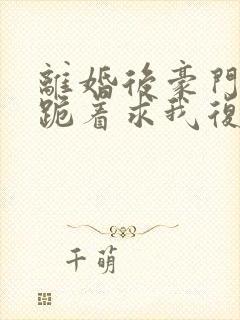 離婚後豪門
跪着求我復
千萌